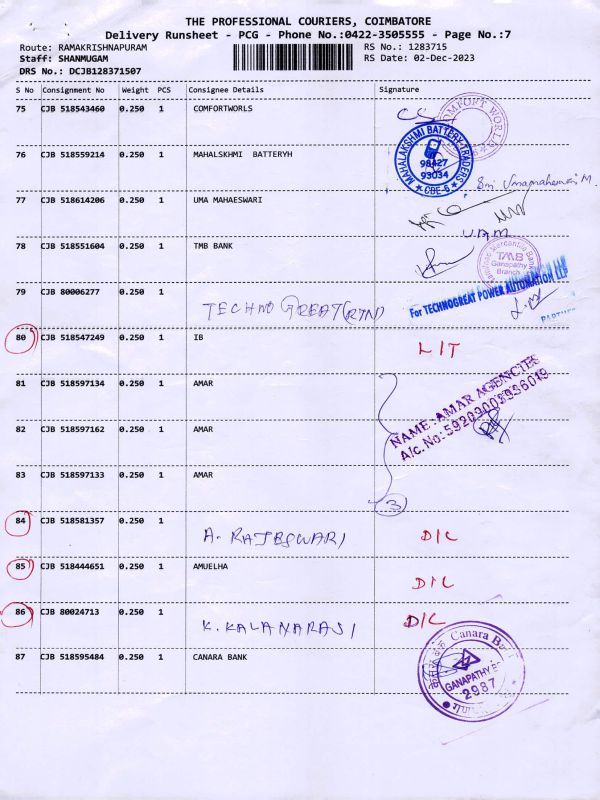 THE PROFESSIONAL COURIERS, COIMBATORE
Delivery Runsheet - PCG - Phone No.:0422-3505555 - Page No.:7
Route: RAMAKRISHNAPURAM RS No.: 1283715
Staff: SHANMUGAM RS Date: 02-Dec-2023
DRS No.: DCJB128371507
S No Consignment No Weight PCS Consignee Details Signature
75 CJB 518543460 0.250 1 COMFORTWORLS
76 CJB 518559214 0.250 1 MAHALSKHMI BATTERYH
MAHALAKSHMI BATTERY TRADERS
98427
93034
CBE-6
77 CJB 518614206 0.250 1 UMA MAHAESWARI
78 CJB 518551604 0.250 1 TMB BANK
Mercantile Bank
TMB
Ganapathy
Branch
79 CJB 80006277 0.250 1
TECHNO GREAT (RTN)
For TECHNOGREAT POWER AUTOMATION LLP
PARTNER
80 CJB 518547249 0.250 1 IB L/T
81 CJB 518597134 0.250 1 AMAR
NAME: AMAR AGENCIES
A/c. No: 59209003936049
82 CJB 518597162 0.250 1 AMAR
83 CJB 518597133 0.250 1 AMAR
3
84 CJB 518581357 0.250 1
A. RAJESWARI D/C
85 CJB 518444651 0.250 1 AMUELHA D/C
86 CJB 80024713 0.250 1 D/C
K. KALANARASI
87 CJB 518595484 0.250 1 CANARA BANK
Canara Bank
GANAPATHY
2987